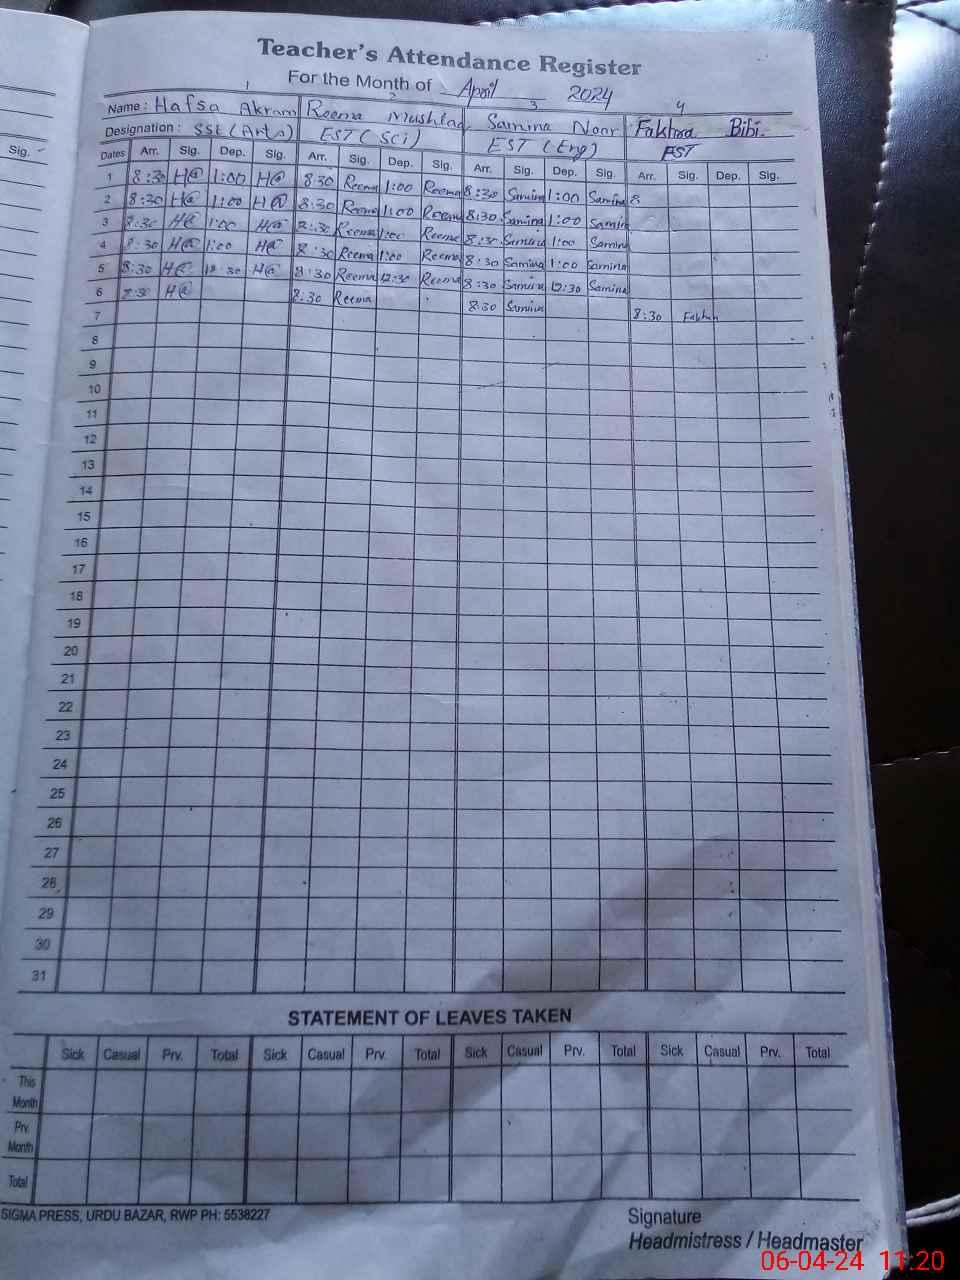 Teacher's Attendance Register
For the Month of April 2024
1 2 3 4
Name : Hafsa Akram Reema Mushtaq Samina Noor Fakhra Bibi.
Designation : SSE (Arts) EST (Sci) EST (Eng) EST
Sig.
Dates Arr. Sig. Dep. Sig. Arr. Sig. Dep. Sig. Arr. Sig. Dep. Sig. Arr. Sig. Dep. Sig.
1 8:30 H@ 1:00 H@ 8:30 Reema 1:00 Reema 8:30 Samina 1:00 Samina 8
2 8:30 H@ 1:00 H@ 8:30 Reema 1:00 Reema 8:30 Samina 1:00 Samina
3 8:30 H@ 1:00 H@ 8:30 Reema 1:00 Reema 8:30 Samina 1:00 Samina
4 8:30 H@ 1:00 H@ 8:30 Reema 1:00 Reema 8:30 Samina 1:00 Samina
5 8:30 H@ 12:30 H@ 8:30 Reema 12:30 Reema 8:30 Samina 12:30 Samina
6 8:30 H@ 8:30 Reema 8:30 Samina 8:30
7
8
9
10
11
12
13
14
15
16
17
18
19
20
21
22
23
24
25
26
27
28
29
30
31
STATEMENT OF LEAVES TAKEN
Sick Casual Prv. Total Sick Casual Prv. Total Sick Casual Prv. Total Sick Casual Prv. Total
This
Month
Prv.
Month
Total
SIGMA PRESS, URDU BAZAR, RWP PH: 5538227
Signature
Headmistress / Headmaster
06-04-24 11:20